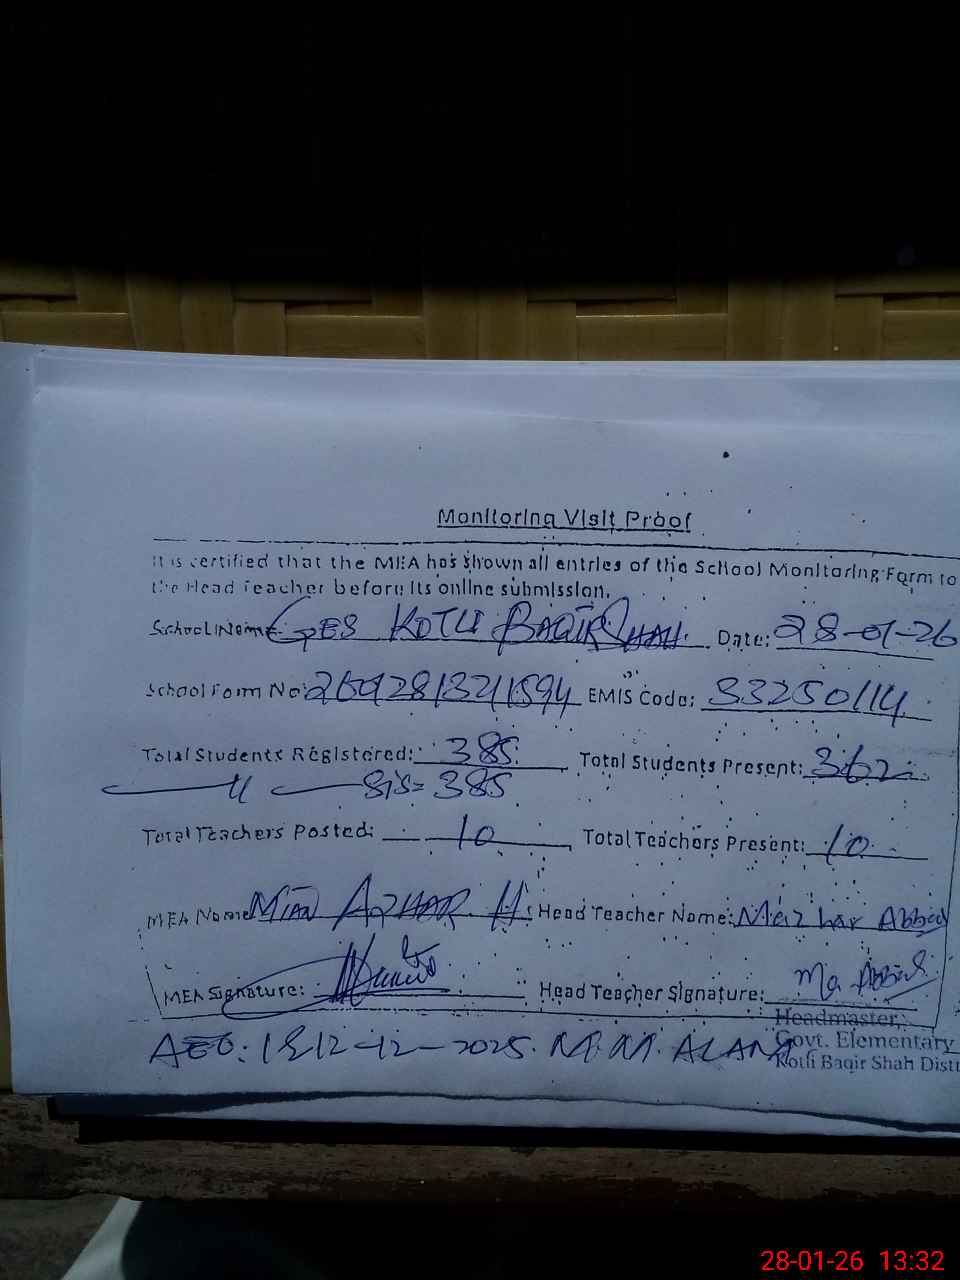 Monitoring Visit Proof
It is certified that the MEA has shown all entries of the School Monitoring Form to
the Head Teacher before its online submission.
School Name: GES KOTLI BAQIR SHAH. Date: 28-01-26
School Form No: EMIS Code: 33250114
Total Students Registered: 385 Total Students Present: 362
SIS= 385
Total Teachers Posted: 10 Total Teachers Present: 10
MEA Name MIAN AZHAR H Head Teacher Name: Mazhar Abbas
MEA Signature: Head Teacher Signature: Ma Abbas
Headmaster,
Govt. Elementary
Kotli Baqir Shah Distt
AEO: 12-12-2025. M.M. ALAM
28-01-26 13:32